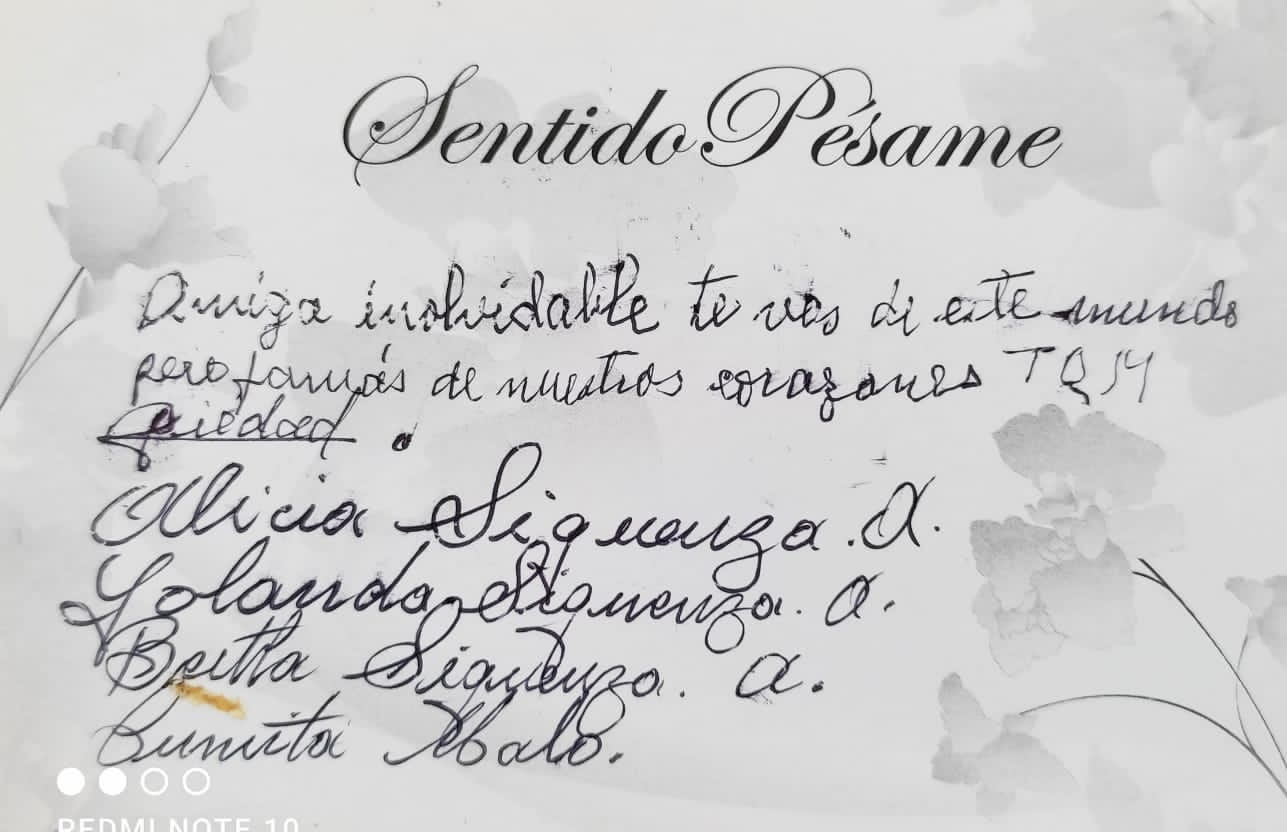 Sentido Pésame
Amiga inolvidable te vas de este mundo
pero jamás de nuestros corazones TQM
piedad.
Alicia Siguenza. A.
Yolanda Siguenza. A.
Bertha Siguenza. A.
Malo.
REDMI NOTE 10